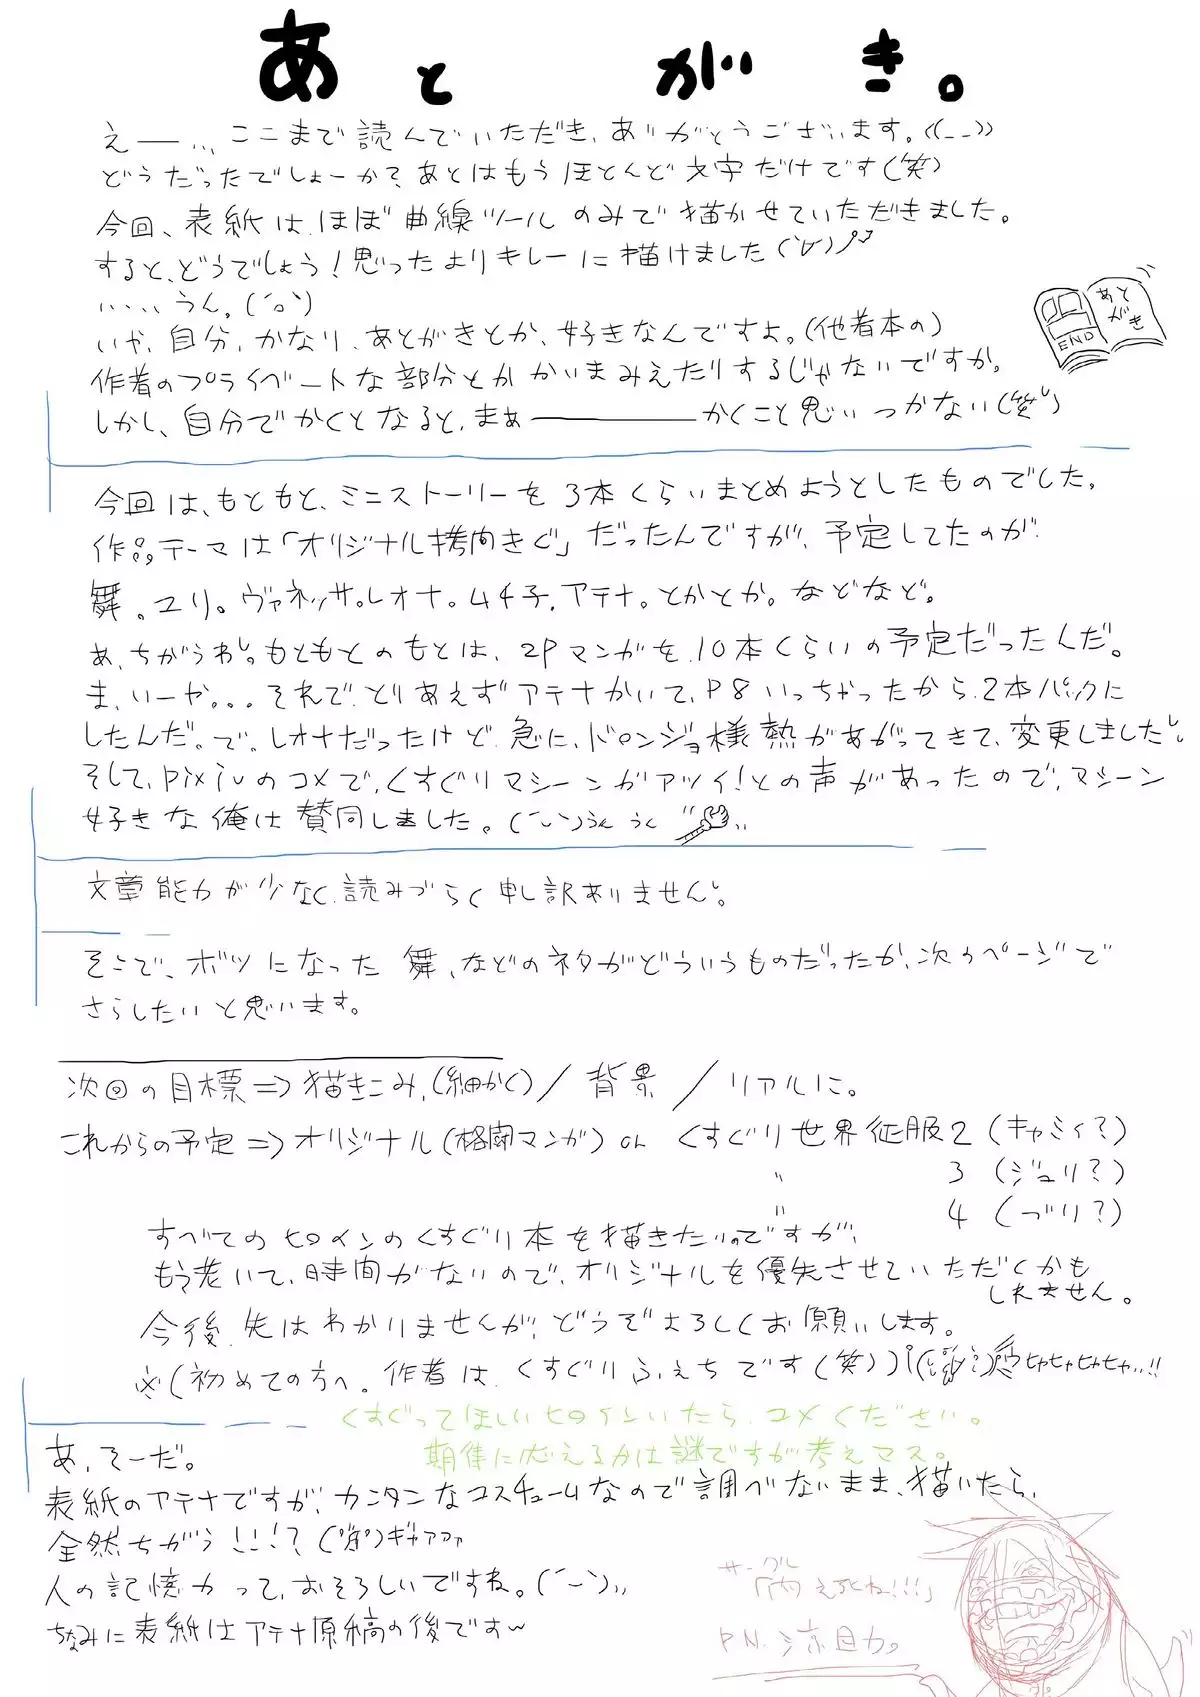 あとがき。
えー…ここまで読んでいただき、ありがとうございます。((_ _))
どうだったでしょーか？あとはもうほとんど文字だけです(笑)
今回、表紙は、ほぼ曲線ツールのみで描かせていただきました。
すると、どうでしょう！思ったよりキレーに描けました(´∀`)ノ
……うん。(´o`)
いや、自分、かなり、あとがきとか、好きなんですよ。(他者本の)
あとがき
END
作者のプライベートな部分とかかいまみえたりするじゃないですか。
しかし、自分でかくとなると、まぁーーーかくこと思いつかない(笑)
今回は、もともと、ミニストーリーを3本くらいまとめようとしたものでした。
作品テーマは「オリジナル拷問きぐ」だったんですが、予定してたのが
舞。ユリ。ヴァネッサ。レオナ。ムチ子。アテナ。とかとか。などなど。
あ、ちがうわ。もともとのもとは、2Pマンガを、10本くらいの予定だったんだ。
ま、いーや。。。それで、とりあえずアテナかいて、P8いっちゃったから、2本パックに
したんだ。で。レオナだったけど、急に、ドロンジョ様熱があがってきて、変更しました。
そして、pixivのコメで、くすぐりマシーンがアツイ！との声があったので、マシーン
好きな俺は賛同しました。(´ー`)うんうん
文章能力が少なく、読みづらく申し訳ありません。
そこで、ボツになった舞、などのネタがどういうものだったか、次のページで
さらしたいと思います。
次回の目標⇒描きこみ、(細かく)／背景／リアルに。
これからの予定⇒オリジナル(格闘マンガ) or くすぐり世界征服2 (キャミィ?)
〃 3 (ジュリ?)
〃 4 (づり?)
すべてのヒロインのくすぐり本を描きたいのですが、
もう老いて、時間がないので、オリジナルを優先させていただくかも
しれません。
今後、先はわかりませんが、どうぞよろしくお願いします。
※(初めての方へ。作者は、くすぐりふぇちです(笑))ヒャヒャヒャヒャ…!!
くすぐってほしいヒロインいたら、コメください。
期待に応えるかは謎ですが考えマス。
あ、そーだ。
表紙のアテナですが、カンタンなコスチュームなので調べないまま、描いたら、
全然ちがう！！！？ギャアアァ
人の記憶力って、おそろしいですね。(´ー`)
ちなみに表紙はアテナ原稿の後です〜
サークル
P.N.涼目力。